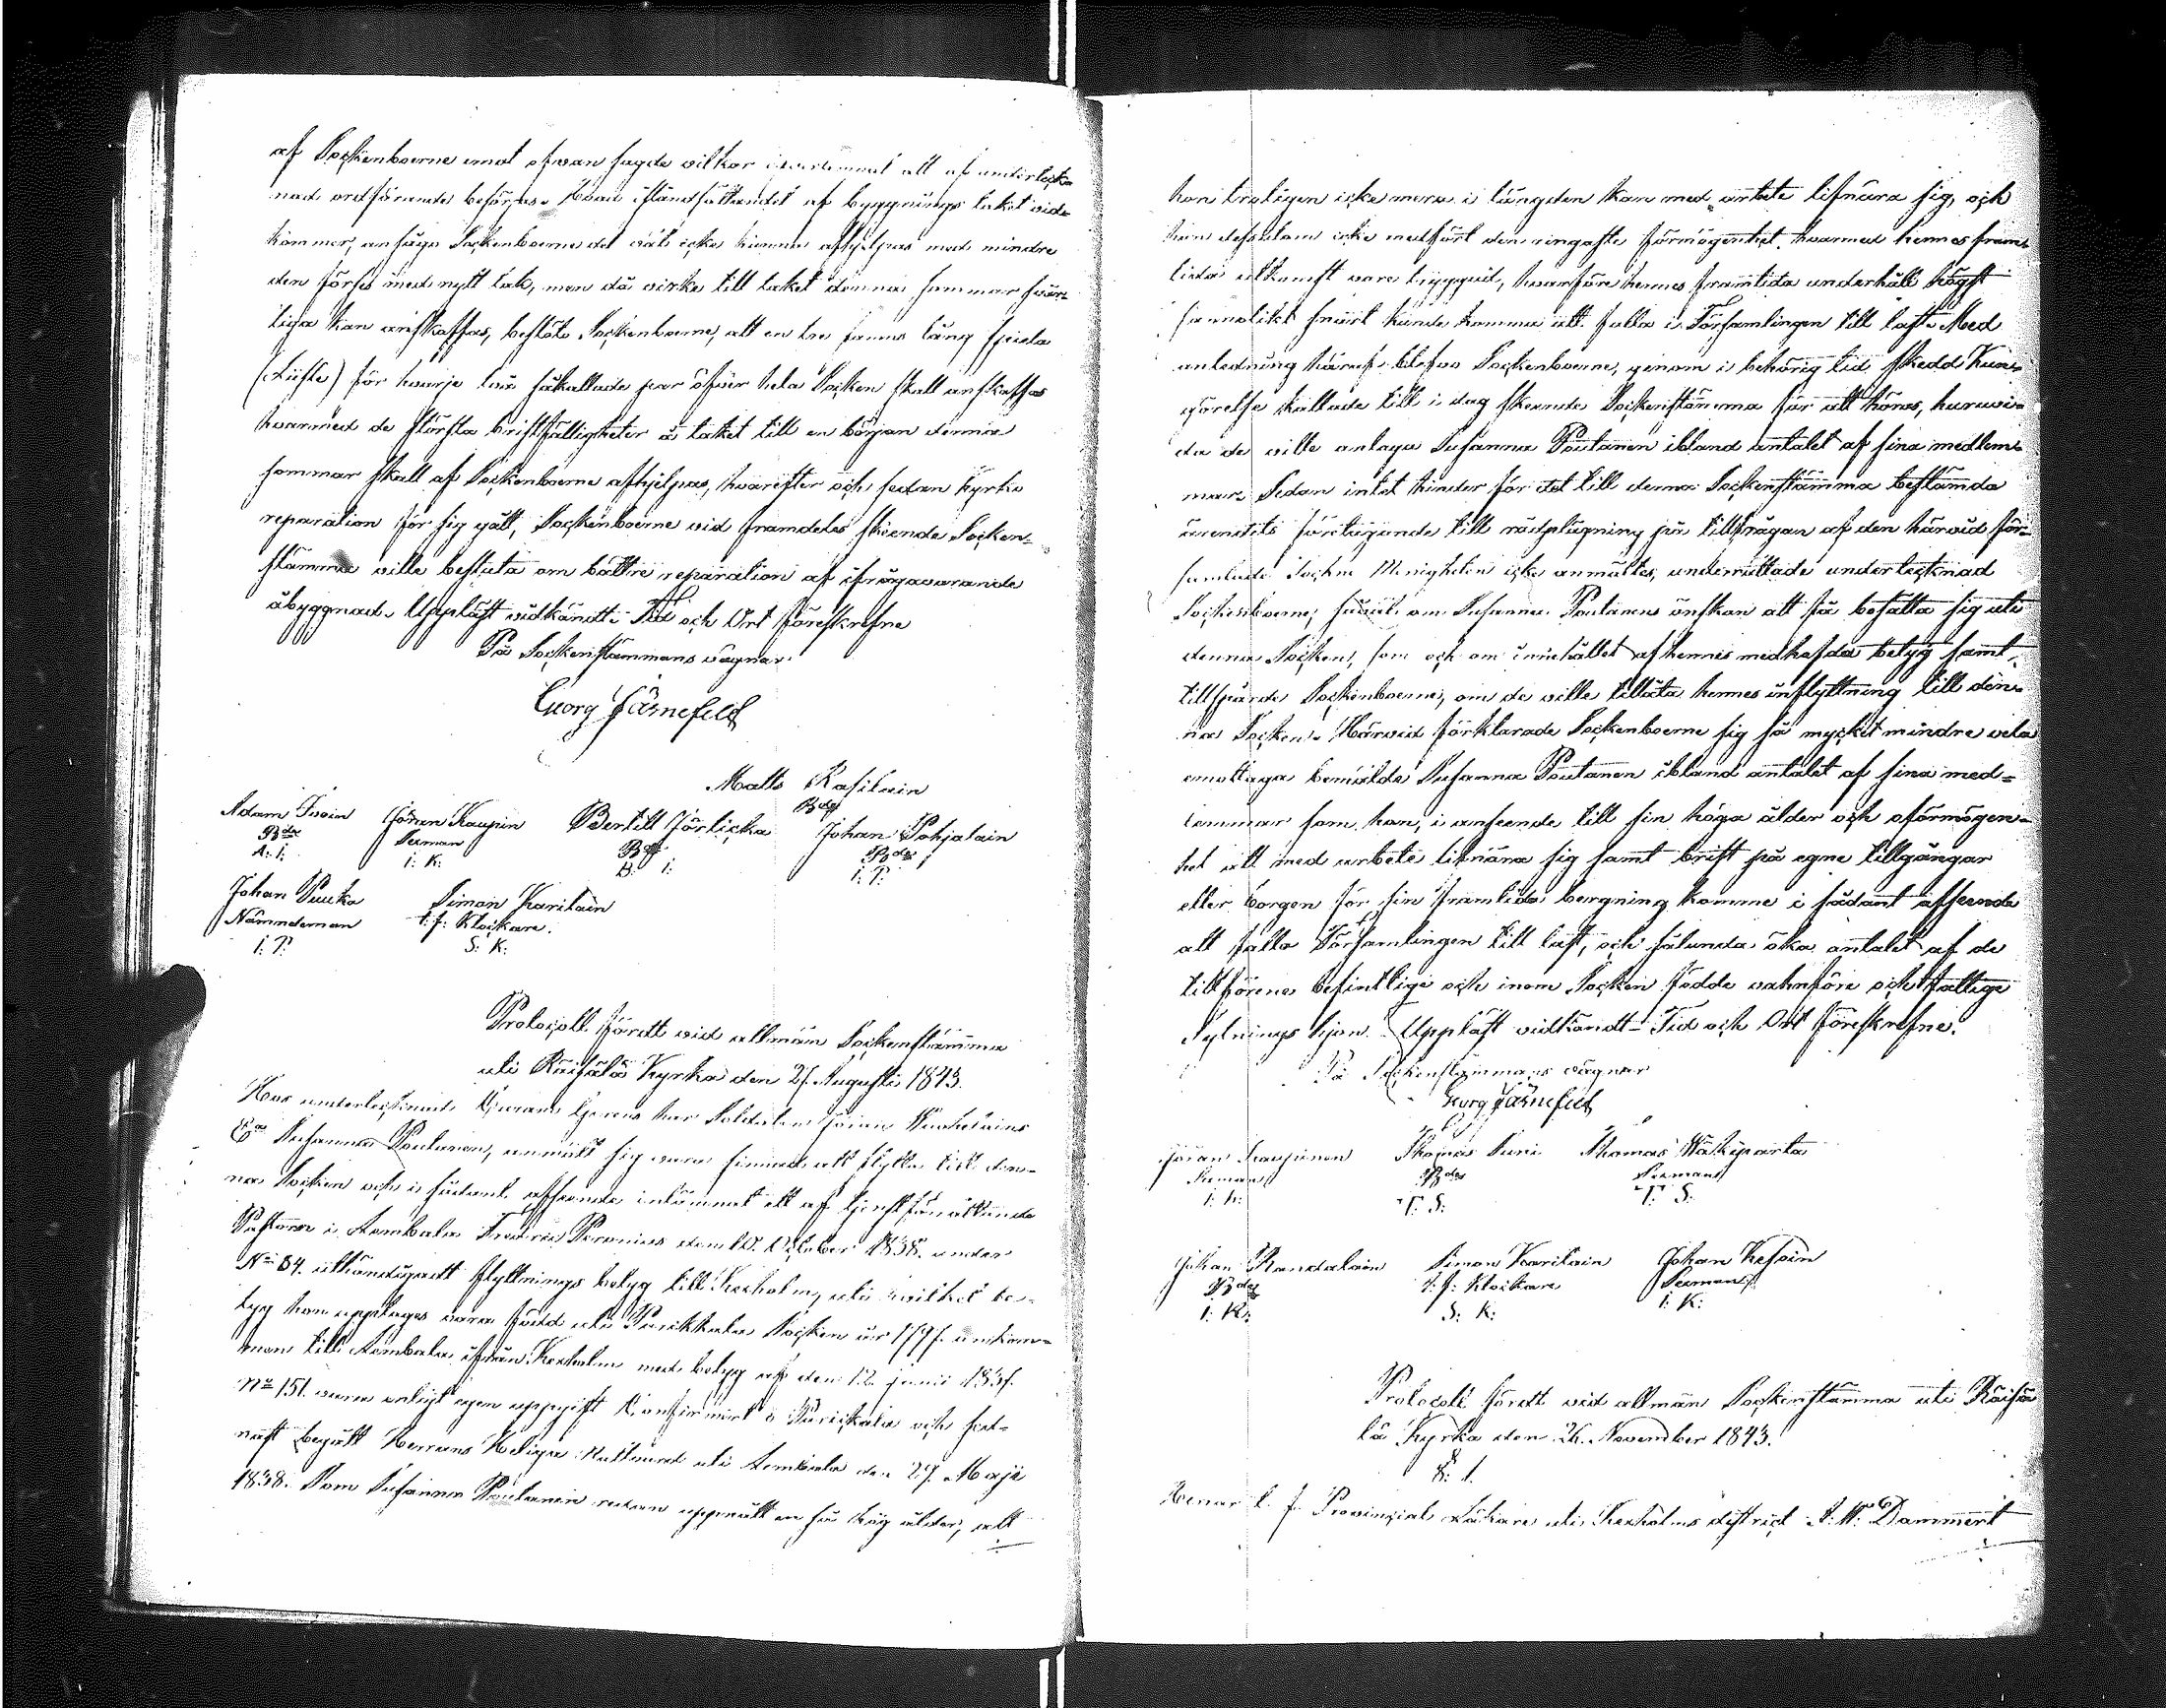 af Sockenboerne emot ofvan sagde vilkor att af underteck-
nad ordförande beförjas. Hvad iståndsättandet af byggnings taket vid-
kommer, ansågo Sockenboerne det väl icke kunna afhjelpas med mindre
den förses med nytt tak, men då virke till taket denna sommar svår-
liga kan anskaffas, beslöto Sockenboerne, att en tre famns lång
för hvarje så kallade par öfver hela Socken skall anskaffas
hvarmed de största bristfälligheter å taket till en början denna
sommar skall af Sockenboerne afhjelpas, hvarefter och sedan Kyrko
reparation för sig gått, Sockenboerne vid framdeles skeende Socken-
stämma ville besluta om bättre reparation af ifrågavarande
åbyggnad. Uppläst vidkändt. Tid och Ort föreskrefne
På Sockenstämmans vägnar.
Georg Järnefelt
Matts Rasilain
Bdes
Adam Iivoin Göran Kaupin Bertill Jörlicka Johan Pohjalain
Bdes Sexman Bdes Bdes
A: I: I: K: B: I: I: P:
Johan Puuka Simon Karilain
Nämndeman t.f: Klockare.
I: P: S: K:
Protocoll fördt vid allmän Sockenstämma
uti Räisälä Kyrka den 27. Augusti 1843.
Hos undertecknad har Soldaten
Ea Susanna Poutanen, anmält sig vara sinnad att flytta till den-
na Socken och i sådant afseende inlämnat ett af tjenstförrättande
Pastorn i Sembala den 10. October 1838. under
No 84. uthändigadt flyttnings betyg till Kexholm, uti hvilket be-
tyg hon upptages vara född uti Parikkala Socken år 1797. ankom-
men till Sembala ifrån Kexholm med betyg af den 12 junii 1837.
No 151. vara enligt egen uppgift Confirmerad i Parickala och sed-
nast begått Herrans Heliga Nattvard uti Sembala den 27. Maji
1838. Som Susanna Poutanen redan uppnått en så hög ålder, att
hon troligen icke mera i längden kan med arbete lifnära sig, och
hon dessutom icke medfört den ringaste förmögenhet, hvarmed hennes fram-
tida utkomst vore tryggad, hvarföre hennes framtida underhåll högst
sannolikt snart kunde komma att falla i Församlingen till last. Med
anledning häraf blefvo Sockenboerne, genom i behörig tid skedd Kun-
görelse kallade till i dag skeende Sockenstämma för att höras, huruvi-
da de ville antaga Susanna Poutanen ibland antalet af sina medlem-
mar. Sedan intet hinder för det till denna Sockenstämma bestämda
ärendets företagande till rådplägning på tillfrågan af den härvid för-
samlade Sockne Menigheten icke anmältes, underrättade undertecknad
Sockenboerne, såväl om Susanna Poutanens önskan att få besätta sig uti
denna Socken, som och om innehållet af hennes medhafda betyg samt
tillsporde Sockenboerne, om de ville tillåta hennes inflyttning till den-
na Socken. Härvid förklarade Sockenboerne sig så mycket mindre vela
emottaga bemälda Susanna Poutanen ibland antalet af sina med-
lemmar som hon, i anseende till sin höga ålder och oförmögen-
het att med arbete lifnära sig samt brist på egne tillgångar
eller borgen för sin framtida bergning komme i sådant afseende
att falla Församlingen till last, och sålunda öka antalet af de
tillförene befintlige och inom Socken födde vahnföre och fattige
Sytnings hjon. Uppläst vidkändt. Tid och Ort föreskrefne.
På Sockenstämmans vägnar
Georg Järnefelt
Göran Kaupinen Thomas Suni Thomas Wäkiparta
Sexman Bdes Sexman
I: K: T: S: T: S:
Johan Randalain Simon Karilain Johan Kesoin
Bdes t.f: Klockare Sexman
I: R: S: K: I: K:
Protocoll fördt vid allmän Sockenstämma uti Räisä
lä Kyrka den 26. November 1843.
§: 1.
Herr t. f. Provincial Läkare uti Kexholms district A: W: Dammert